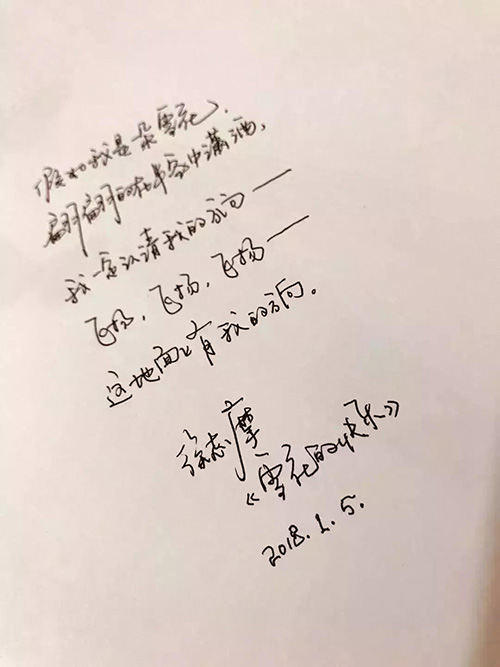 假如我是一朵雪花，
翩翩的在半空中潇洒，
我一定认清我的方向——
飞扬，飞扬，飞扬——
这地面上有我的方向。
徐志摩
《雪花的快乐》
2018.1.5.